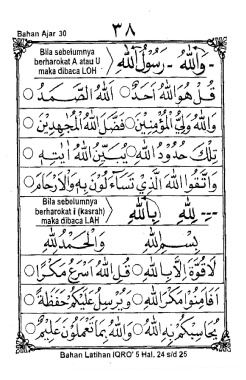 Bahan Ajar 30
٣٨
Bila sebelumnya
berharokat A atau U
maka dibaca LOH :
- وَاللّٰهِ - رَسُوْلُ اللّٰهِ
قُلْ هُوَ اللّٰهُ اَحَدٌ ○ اَللّٰهُ الصَّمَدُ ○
وَاللّٰهُ وَلِيُّ الْمُؤْمِنِيْنَ ○ فَضَّلَ اللّٰهُ الْمُجٰهِدِيْنَ ○
تِلْكَ حُدُوْدُ اللّٰهِ ○ يُبَيِّنُ اللّٰهُ اٰيٰتِهٖ ○
وَاتَّقُوا اللّٰهَ الَّذِيْ تَسَآءَلُوْنَ بِهٖ وَالْاَرْحَامَ ○
Bila sebelumnya
berharokat i (kasrah)
maka dibaca LAH
--- لِلّٰهِ - بِاللّٰهِ
بِسْمِ اللّٰهِ وَالْحَمْدُ لِلّٰهِ
لَا قُوَّةَ اِلَّا بِاللّٰهِ ○ قُلِ اللّٰهُ اَسْرَعُ مَكْرًا ○
اَفَاَمِنُوْا مَكْرَ اللّٰهِ ○ وَيُرْسِلُ عَلَيْكُمْ حَفَظَةً ○
يُحَاسِبْكُمْ بِهِ اللّٰهُ ○ وَاللّٰهُ بِمَا تَعْمَلُوْنَ عَلِيْمٌ ○
Bahan Latihan IQRO' 5 Hal. 24 s/d 25